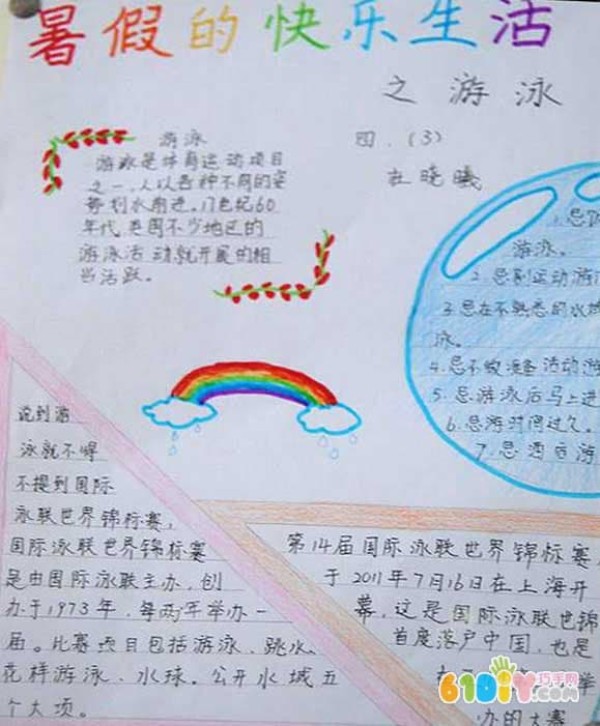 暑假的快乐生活
之游泳
四.(3)
杜晓曦
游泳
游泳是体育运动项目
之一,人以各种不同的姿
势划水前进。17世纪60
年代,英国不少地区的
游泳活动就开展的相
当活跃。
1.忌饭
游泳。
2.忌剧运动游
3.忌在不熟悉的水域
泳。
4.忌不做准备活动游
5.忌游泳后马上进
6.忌游时间过久。
7.忌酒后游
说到游
泳就不得
不提到国际
泳联世界锦标赛,
国际泳联世界锦标赛
是由国际泳联主办,创
办于1973年,每两年举办一
届。比赛项目包括游泳、跳水、
花样游泳、水球。公开水域五
个大项。
第14届国际泳联世界锦标赛,
于2011年7月16日在上海开
幕,这是国际泳联世锦
首度落户中国,也是
举
办的大赛
61DIY巧手网